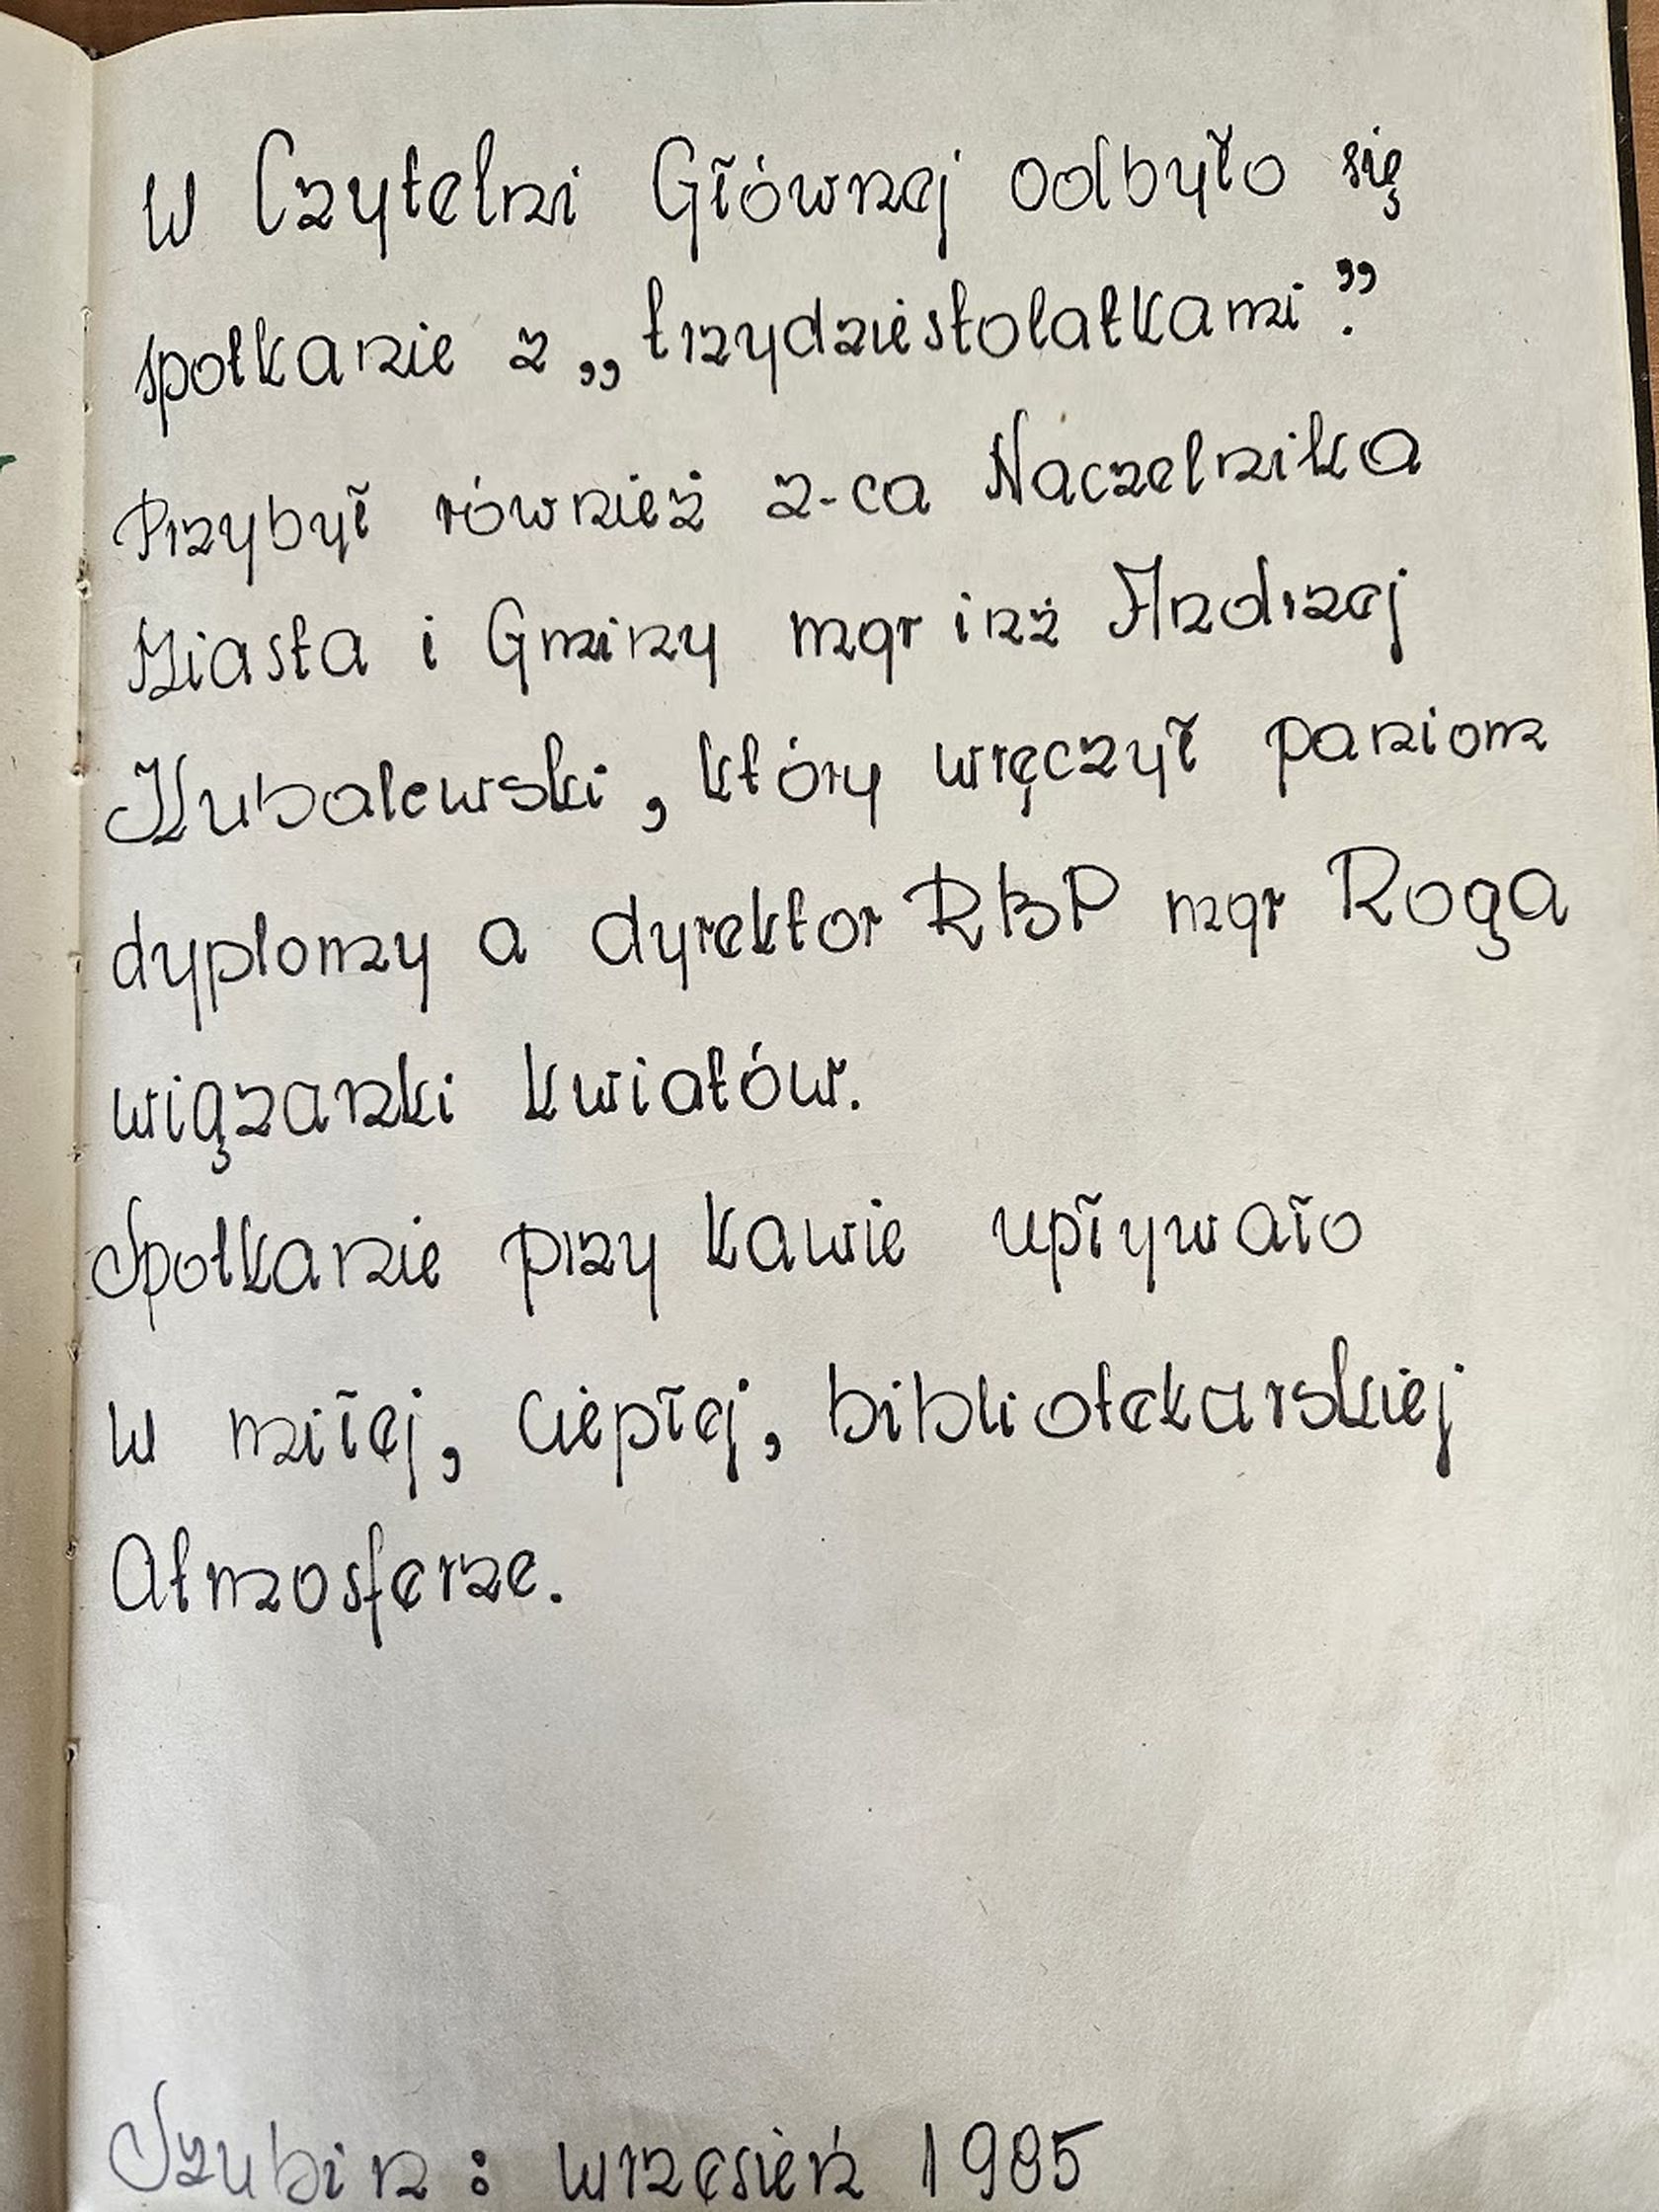 W Czytelni Głównej odbyło się
spotkanie z „trzydziestolatkami”.
Przybył również z-ca Naczelnika
Miasta i Gminy mgr inż Andrzej
Kubalewski, który wręczył paniom
dyplomy a dyrektor RBP mgr Roga
wiązanki kwiatów.
Spotkanie przy kawie upływało
w miłej, ciepłej, bibliotekarskiej
Atmosferze.
Szubin: wrzesień 1985